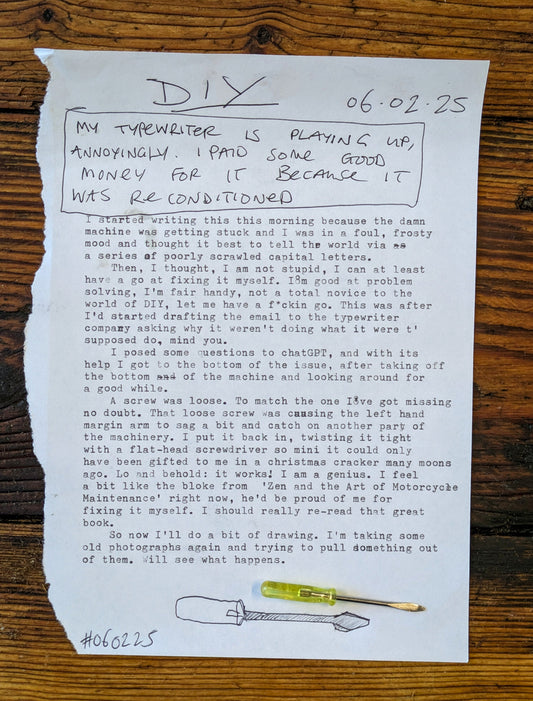 DIY
06.02.25
MY TYPEWRITER IS PLAYING UP,
ANNOYINGLY. I PAID SOME GOOD
MONEY FOR IT BECAUSE IT
WAS RECONDITIONED
I started writing this this morning because the damn
machine was getting stuck and I was in a foul, frosty
mood and thought it best to tell the world via as
a series of poorly scrawled capital letters.
Then, I thought, I am not stupid, I can at least
have a go at fixing it myself. I8m good at problem
solving, I'm fair handy, not a total novice to the
world of DIY, let me have a f*ckin go. This was after
I'd started drafting the email to the typewriter
company asking why it weren't doing what it were t'
supposed do, mind you.
I posed some questions to chatGPT, and with its
help I got to the bottom of the issue, after taking off
the bottom and of the machine and looking around for
a good while.
A screw was loose. To match the one I've got missing
no doubt. That loose screw was causing the left hand
margin arm to sag a bit and catch on another part of
the machinery. I put it back in, twisting it tight
with a flat-head screwdriver so mini it could only
have been gifted to me in a christmas cracker many moons
ago. Lo and behold: it works! I am a genius. I feel
a bit like the bloke from 'Zen and the Art of Motorcycle
Maintenance' right now, he'd be proud of me for
fixing it myself. I should really re-read that great
book.
So now I'll do a bit of drawing. I'm taking some
old photographs again and trying to pull something out
of them. Will see what happens.
#060225